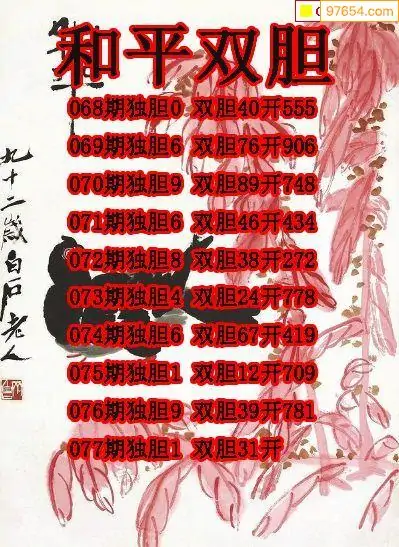 97654.com
和平双胆
068期独胆0 双胆40开555
069期独胆6 双胆76开906
070期独胆9 双胆89开748
071期独胆6 双胆46开434
072期独胆8 双胆38开272
073期独胆4 双胆24开778
074期独胆6 双胆67开419
075期独胆1 双胆12开709
076期独胆9 双胆39开781
077期独胆1 双胆31开
九十二岁白石老人